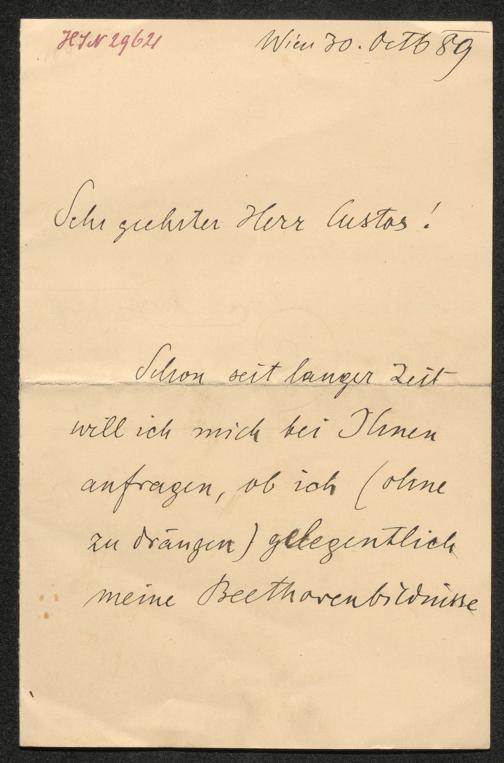 HIN 29621
Wien 30. Octb 89
Sehr geehrter Herr Custos!
Schon seit langer Zeit
will ich mich bei Ihnen
anfragen, ob ich (ohne
zu drängen) gelegentlich
meine Beethovenbildnisse